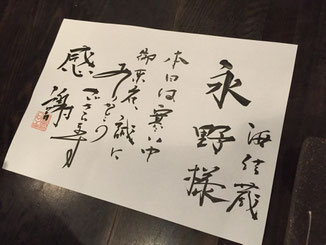 永野様
本日は寒い中
御来店誠に
ありがとう
ございます
感謝